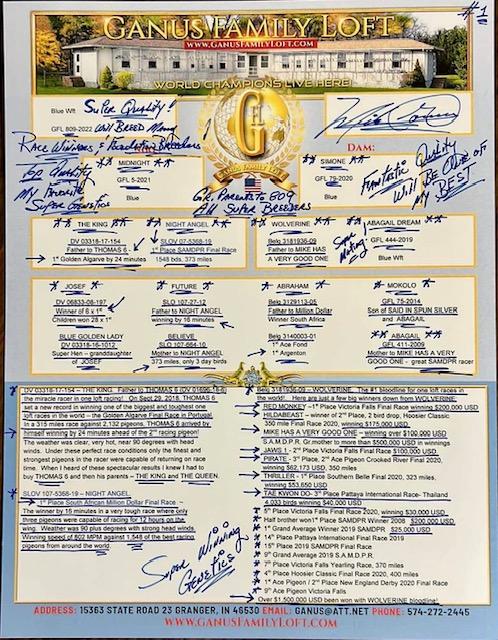 #1
GANUS FAMILY LOFT
WWW.GANUSFAMILYLOFT.COM
WORLD CHAMPIONS LIVE HERE
Blue Wft Super Quality!
GFL 809-2022 Will Breed Many
Race Winners & Foundation Breeders
GFL
GANUS FAMILY LOFT
DAM:
Top Quality
My Favorite
Super Genetics
MIDNIGHT
GFL 5-2021
Blue
SIMONE
GFL 79-2020
Blue
Fantastic Quality
Will Be One of
My BEST
Gr. Parents to 809
All Super Breeders
THE KING
DV 03318-17-154
Father to THOMAS 6
1st Golden Algarve by 24 minutes
NIGHT ANGEL
SLOV 07-5368-19
1st Place SAMDPR Final Race
1548 bds, 373 miles
WOLVERINE
Belg 3181936-09
Father to MIKE HAS
A VERY GOOD ONE
Super Mating
ABAGAIL DREAM
GFL 444-2019
Blue Wft
JOSEF
DV 06833-08-197
Winner of 6 x 1st
Children won 28 x 1st
FUTURE
SLO 107-27-12
Father to NIGHT ANGEL
winning by 16 minutes
ABRAHAM
Belg 3129113-05
Father to Million Dollar
Winner South Africa
MOKOLO
GFL 75-2014
Son of SAID IN SPUN SILVER
and ABAGAIL
BLUE GOLDEN LADY
DV 03318-16-1012
Super Hen – granddaughter
of JOSEF
BELIEVE
SLO 107-664-10
Mother to NIGHT ANGEL
373 miles, only 3 day birds
Belg 3140003-01
1st Ace Fond
1st Argenton
ABAGAIL
GFL 411-2009
Mother to MIKE HAS A VERY
GOOD ONE - great SAMDPR racer
DV 03318-17-154 – THE KING Father to THOMAS 6 (DV 01696-18-6)
the miracle racer in one loft racing! On Sept 29, 2018, THOMAS 6
set a new record in winning one of the biggest and toughest one
loft races in the world – the Golden Algarve Final Race in Portugal.
In a 315 miles race against 2,132 pigeons, THOMAS 6 arrived by
himself winning by 24 minutes ahead of the 2nd racing pigeon!
The weather was clear, very hot, near 90 degrees with head
winds. Under these perfect race conditions only the finest and
strongest pigeons in the race were capable of returning on race
time. When I heard of these spectacular results I knew I had to
buy THOMAS 6 and then his parents – THE KING and THE QUEEN.
SLOV 107-5368-19 – NIGHT ANGEL
1st Place South African Million Dollar Final Race –
The winner by 16 minutes in a very tough race where only
three pigeons were capable of racing for 12 hours on the
wing. Weather was 90 plus degrees with strong head winds.
Winning speed of 802 MPM against 1,548 of the best racing
pigeons from around the world.
Super Winning
Genetics!
Belg 3181936-09 – WOLVERINE. The #1 bloodline for one loft races in
the world! Here are just a few big winners down from WOLVERINE:
RED MONKEY –1st Place Victoria Falls Final Race winning $200,000 USD
HILDABEAST – winner of 2nd Place, 2 bird drop, Hoosier Classic
350 mile Final Race 2020, winning $175,000 USD
MIKE HAS A VERY GOOD ONE – winning over $100,000 USD
S.A.M.D.P.R. Gr mother to more than $500,000 USD in winnings
JAWS 1 - 2nd Place Victoria Falls Final Race $100,000 USD
PIRATE - 3rd Place, 2nd Ace Pigeon Crooked River Final 2020,
winning $62,173 USD, 350 miles
THRILLER - 1st Place Southern Belle Final 2020, 323 miles,
winning $53,650 USD
TAE KWON DO- 3rd Place Pattaya International Race- Thailand
4,033 birds winning $40,000 USD
5th Place Victoria Falls Final Race 2020, winning $30,000 USD
Half brother won 1st Place SAMDPR Winner 2008 $200,000 USD
1st Grand Average Winner 2019 SAMDPR $25,000 USD
14th Place Pattaya International Final Race 2019
15th Place 2019 SAMDPR Final Race
9th Grand Average 2019 S.A.M.D.P.R.
7th Place Victoria Falls Yearling Race, 370 miles
4th Place Hoosier Classic Final Race 2020, 400 miles
1st Ace Pigeon / 2nd Place New England Derby 2020 Final Race
9th Ace Pigeon Victoria Falls
Over $1,500,000 USD been won with WOLVERINE bloodline!
ADDRESS: 15363 STATE ROAD 23 GRANGER, IN 46530 EMAIL: GANUS@ATT.NET PHONE: 574-272-2445
WWW.GANUSFAMILYLOFT.COM